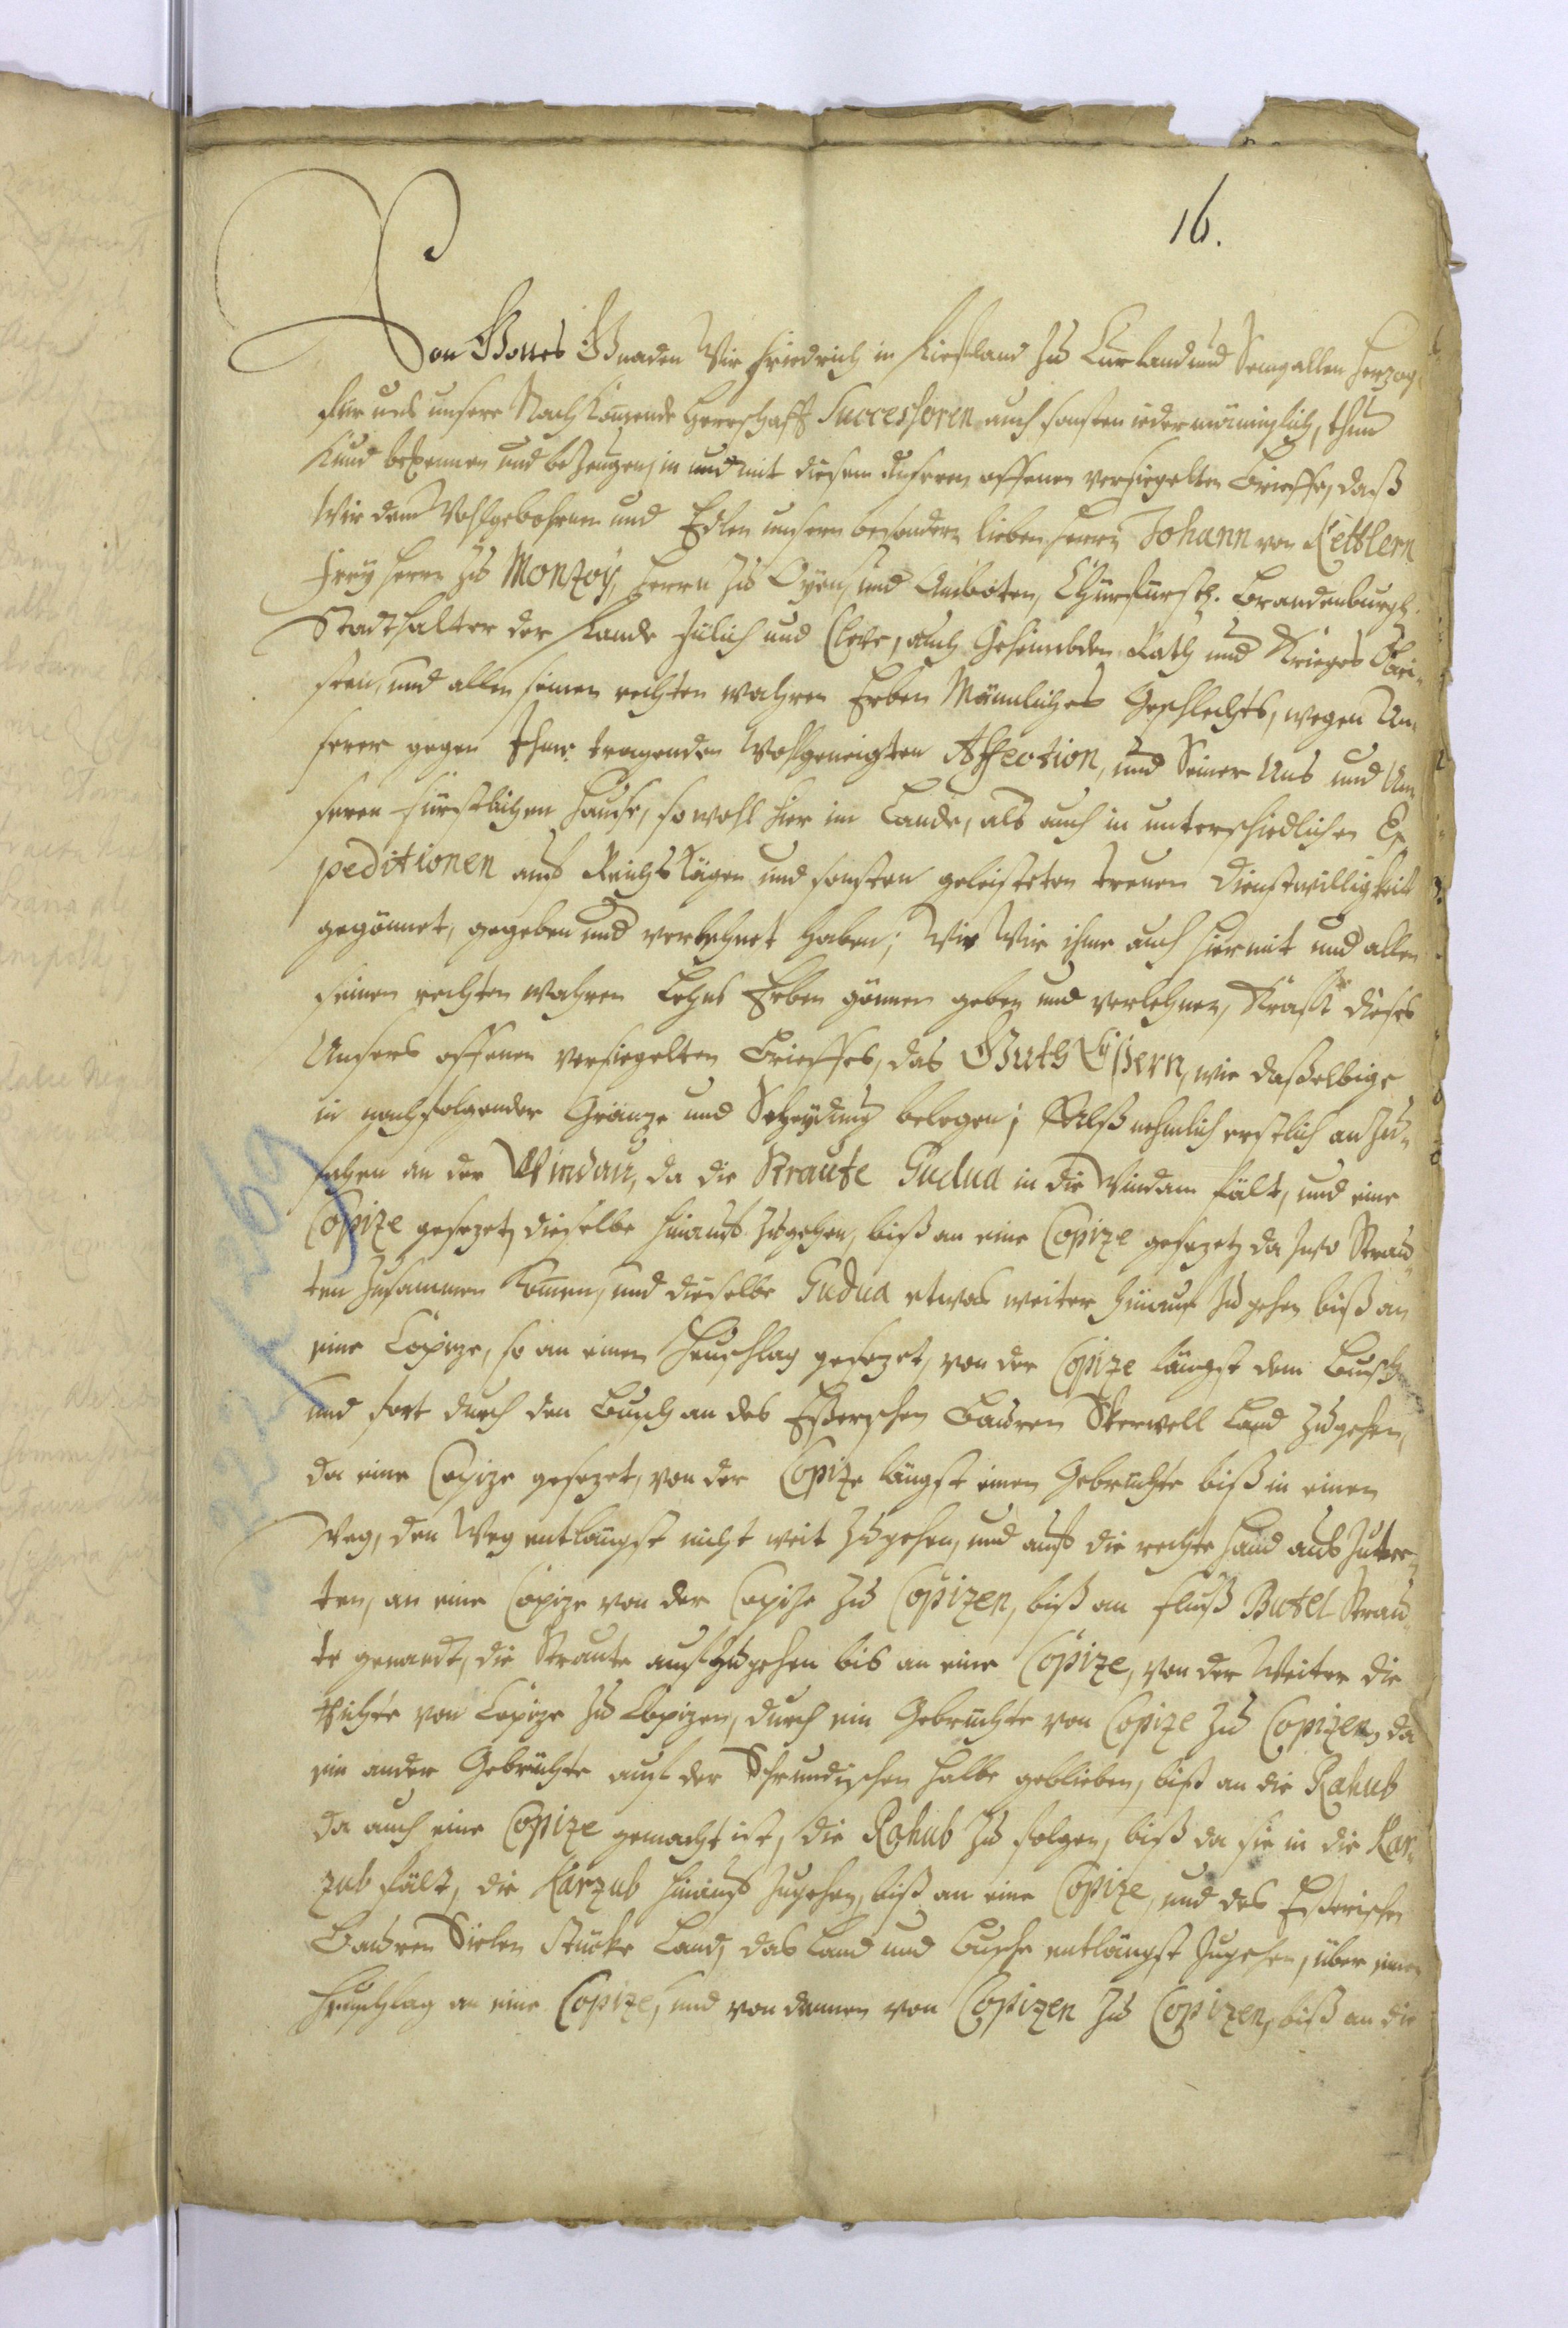 16.
Von Gottes Gnaden Wir Friedrich in Lieffland zu Curland und Semgallen Herzog,
für uns unsere Nachkommende Herrschafft Successoren auch sonsten iedermänniglich, thun
kund bekennen und bezeugen, in und mit diesem unseren offenen versiegelten Brieffe, daß
Wir dem Wohlgebohrnen und Edlen unsern besondern lieben Herrn Johann von Kettlern
Freyherrn zu Montjoy, Herrn zu Oyen, und Amboten, Churfürstl. Brandenburgl.
Stadthalter der Lande Jülich und Cleve, auch Geheimbden Rath und Krieges Obri-
sten, und allen seinen rechten wahren Erben Männliches Geschlechts, wegen Un-
serer gegen Ihme tragenden Wohlgeneigten Affection, und Seiner Uns und Un-
seren Fürstlichen Hause, sowohl hier im Lande, als auch in unterschiedlichen Ex-
peditionen auf Reichs Tägen und sonsten geleisteten treuen Dienstwilligkeit
gegönnet, gegeben und verlehnet haben; Wie Wir ihme auch hiermit und allen
seinen rechten wahren Lehns Erben gönnen geben und verlehnen, Krafft dieses
Unsers offenen versiegelten Brieffes, das Guth Eßern, wie daßelbige
in nachfolgender Gränze und Scheydung belegen; Alß nehmlich erstlich anzu-
fahen an der Windau, da die Straute Gudua in die Windau fält, und eine
Copize gesezet, dieselbe hinauf zugehen, biß an eine Copize gesezet, da zwo Strau-
ten zusammen kommen, und dieselbe Gudua etwas weiter hinauf zu gehen biß an
eine Copize, so an einen Heuschlag gesezet, von der Copize längst dem Busch
und fort durch den Busch an des Eßerschen Bauren Skerwell Land zugehen,
da eine Copize gesezet, von der Copize längst einen Gebrüchte biß in einen
Weg, den Weg entlängst nicht weit zugehen, und auf die rechte Hand auszutre-
ten, an eine Copize von der Copize zu Copizen, biß an Fluß Butel Strau-
te genandt, die Straute auf zugehen bis an eine Copize, von der Weiter die
Richte von Copize zu Copizen, durch ein Gebrüchte von Copize zu Copizen, da
ein ander Gebrüchte auf der Schrundischen halbe geblieben, biß an die Rahub
da auch eine Copize gemacht ist, die Rahub zu folgen, biß da sie in die Kar-
zub fält, die Karzub hinauf zugehen, biß an eine Copize, und des Eßerischen
Bauren Sielen Stücke Land, das Land und Busche entlängst zugehen, über einen
Heuschlag an eine Copize, und von dannen von Copizen zu Copizen, biß an die